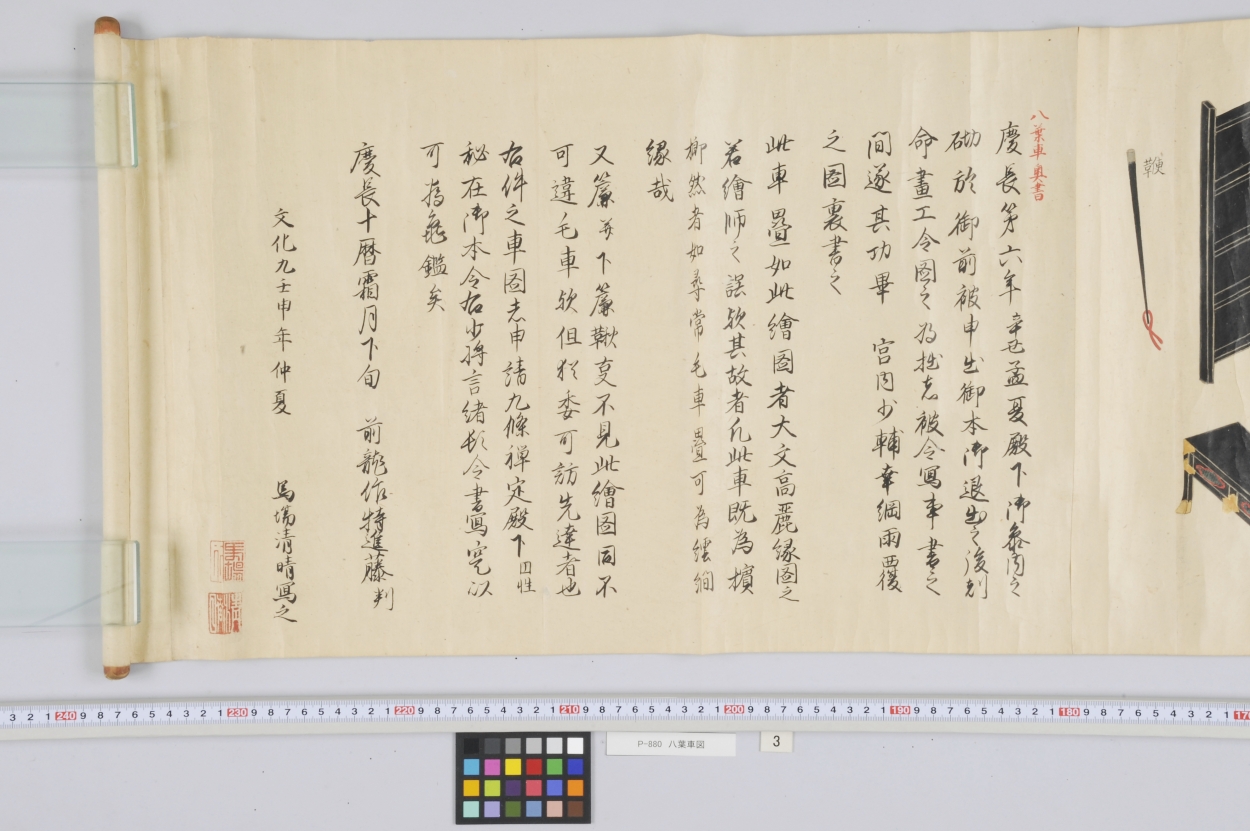 鞭
八葉車奥書
慶長第六年辛丑孟夏殿下御参内之
砌於御前被申出御本御退出之後則
命畫工令圖之為拙者被令写本書之
間遂其功畢 宮内少輔幸綱雨覆
之圖裏書之
此車疊如此繪圖者大文高麗縁圖之
若繪師之誤欤其故者凡此車既為擯
榔然者如尋常毛車疊可為繧繝
縁哉
又簾并下簾鞦更不見此繪圖同不
可違毛車欤但猶委可訪先達者也
右件之車圖者申請九條禅定殿下
秘在御本令右少将言緒朝令書写訖以
可為龜鑑矣
慶長十暦霜月下旬 前龍作特進藤判
文化九壬申年仲夏 馬場清晴寫之
3 2 1 240 9 8 7 6 5 4 3 2 1 230 9 8 7 6 5 4 3 2 1 220 9 8 7 6 5 4 3 2 1 210 9 8 7 6 5 4 3 2 1 200 9 8 7 6 5 4 3 2 1 190 9 8 7 6 5 4 3 2 1 180 9 8 7 6 5 4 3 2 1 170
P-880 八葉車図
3